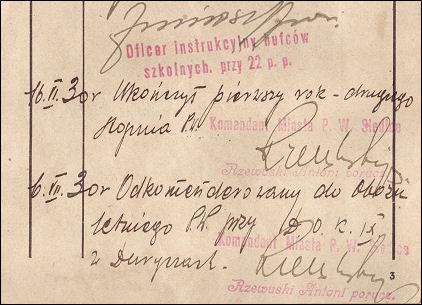 Oficer instrukcyjny hufców
szkolnych. przy 22 p. p.
16.VI.30r Ukończył pierwszy rok - drugiego
stopnia P.W. Komendant Miasta P. W. Siedlce
Rzewuski Antoni porucz.
6.VII.30r Odkomenderowany do obozu
letniego P.W. przy D.O.K. IX
Komendant Miasta P. W. Siedlce
z
Rzewuski Antoni porucz.
3